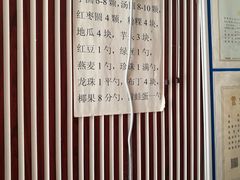 圆6-8颗,汤圆8-10颗,
红枣圆4颗,粉粿4块,
地瓜4块,芋头3块,
红豆1勺,绿豆1勺,
燕麦1勺,珍珠1满勺,
龙珠1平勺,布丁4块,
椰果8分勺,雪蛙蛋一勺